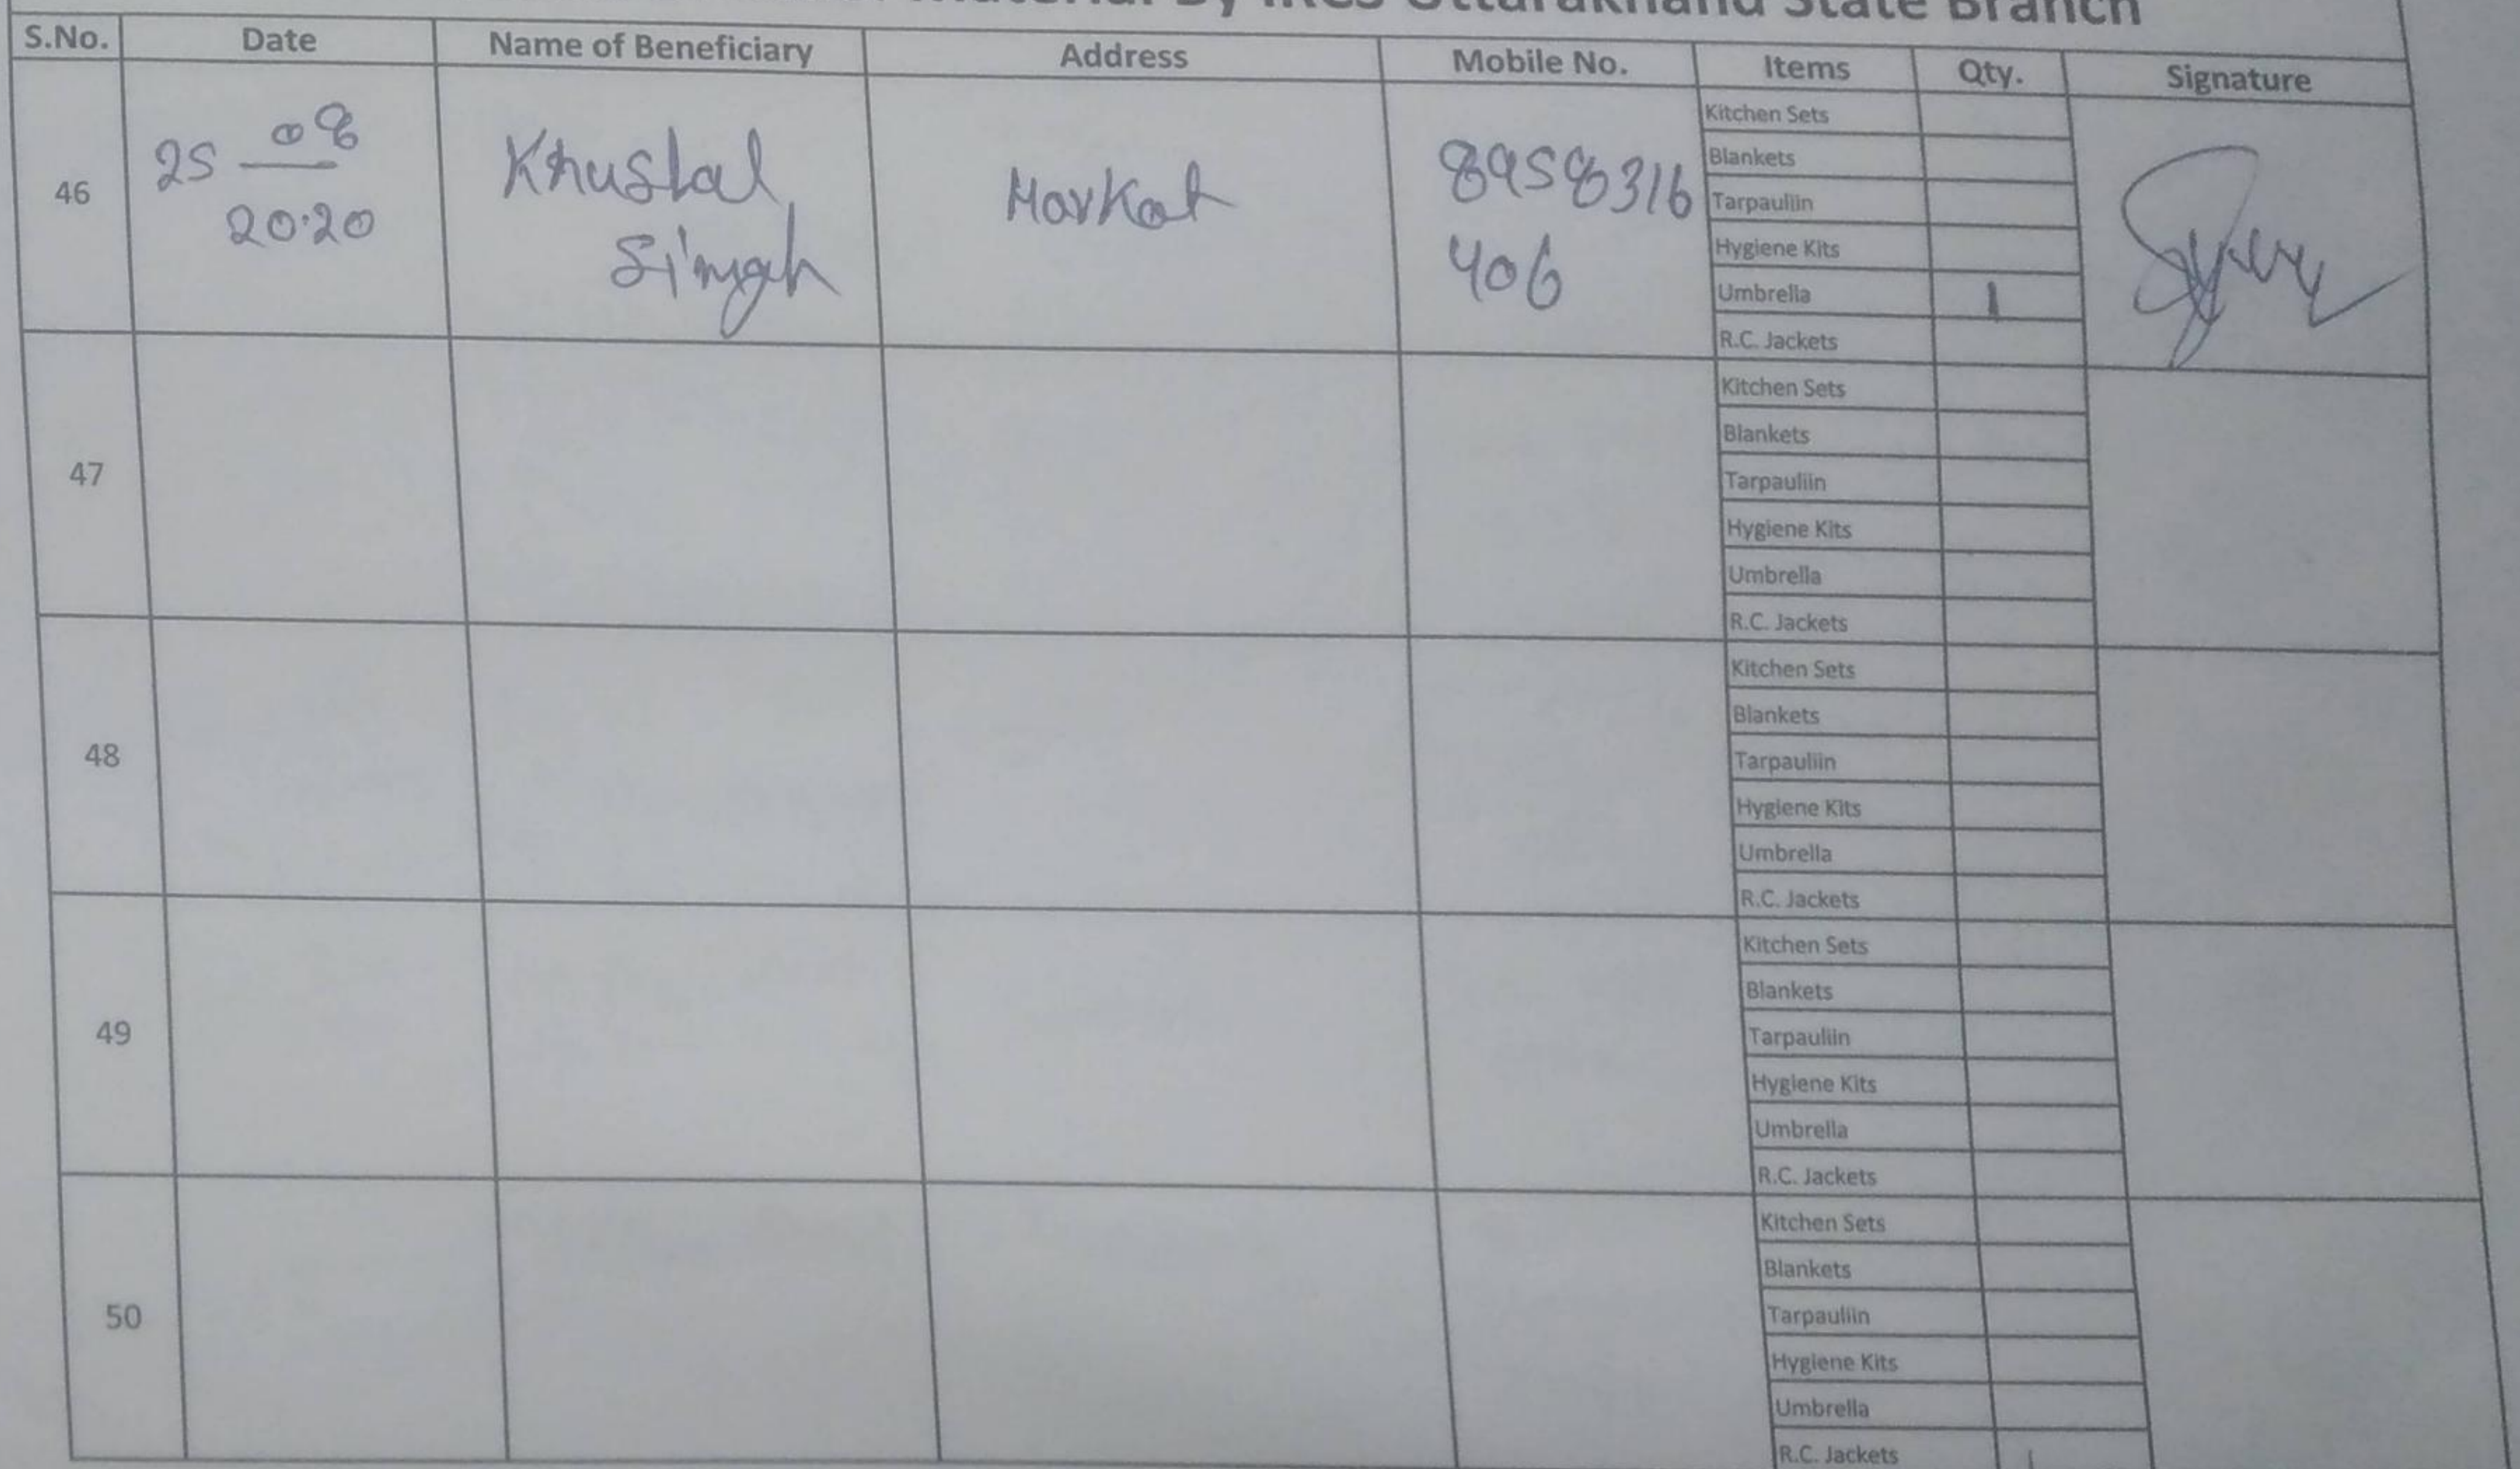 By IRCS Uttarakhand State Branch
S.No. Date Name of Beneficiary Address Mobile No. Items Qty. Signature
46
25 08
20.20
Khushal
Singh
Markat
8958316
406
Kitchen Sets
Blankets
Tarpauliin
Hygiene Kits
Umbrella 1
R.C. Jackets
47
Kitchen Sets
Blankets
Tarpauliin
Hygiene Kits
Umbrella
R.C. Jackets
48
Kitchen Sets
Blankets
Tarpauliin
Hygiene Kits
Umbrella
R.C. Jackets
49
Kitchen Sets
Blankets
Tarpauliin
Hygiene Kits
Umbrella
R.C. Jackets
50
Kitchen Sets
Blankets
Tarpauliin
Hygiene Kits
Umbrella
R.C. Jackets